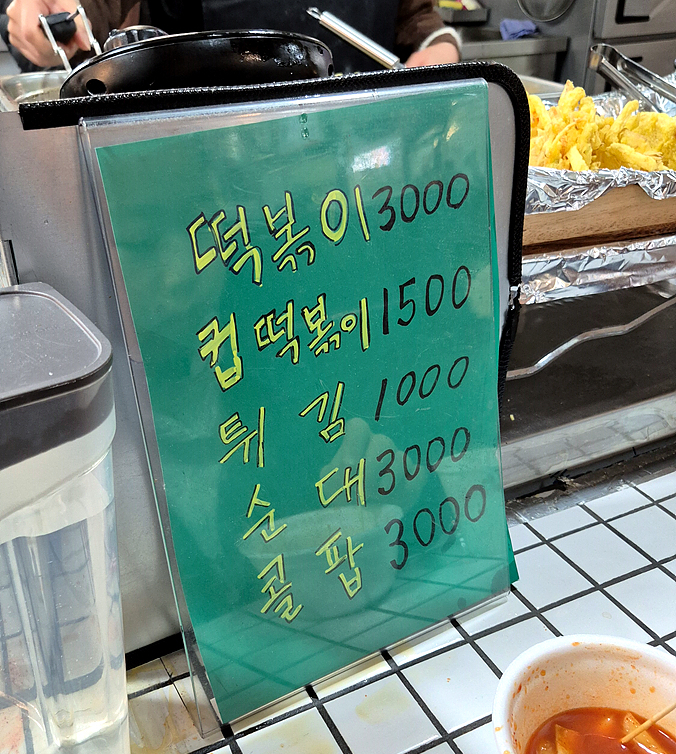 떡볶이 3000
컵떡볶이 1500
튀김 1000
순대 3000
콜팝 3000